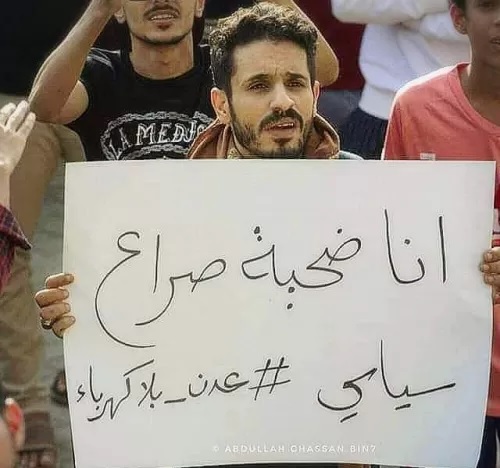 LA MEDJ
انا ضحية صراع
سياسي #عدن_بلا_كهرباء
© ABDULLAH GHASSAN BIN7